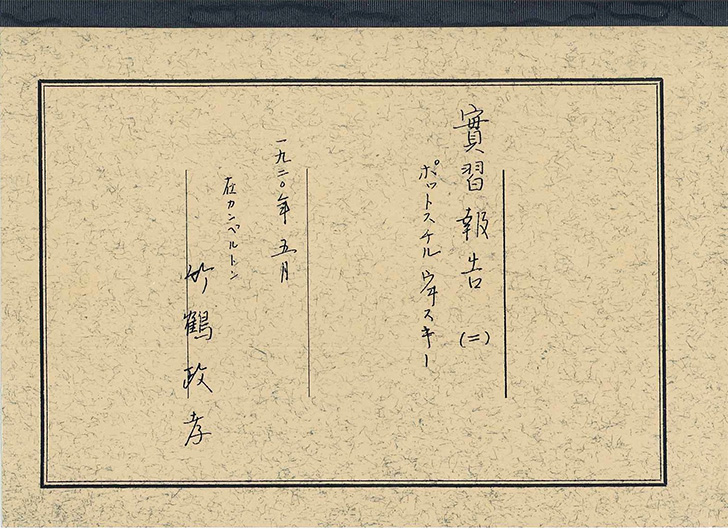 實習報告(二)
ポットスチルウヰスキー
一九二〇年五月
在カンベルトン
竹鶴政孝